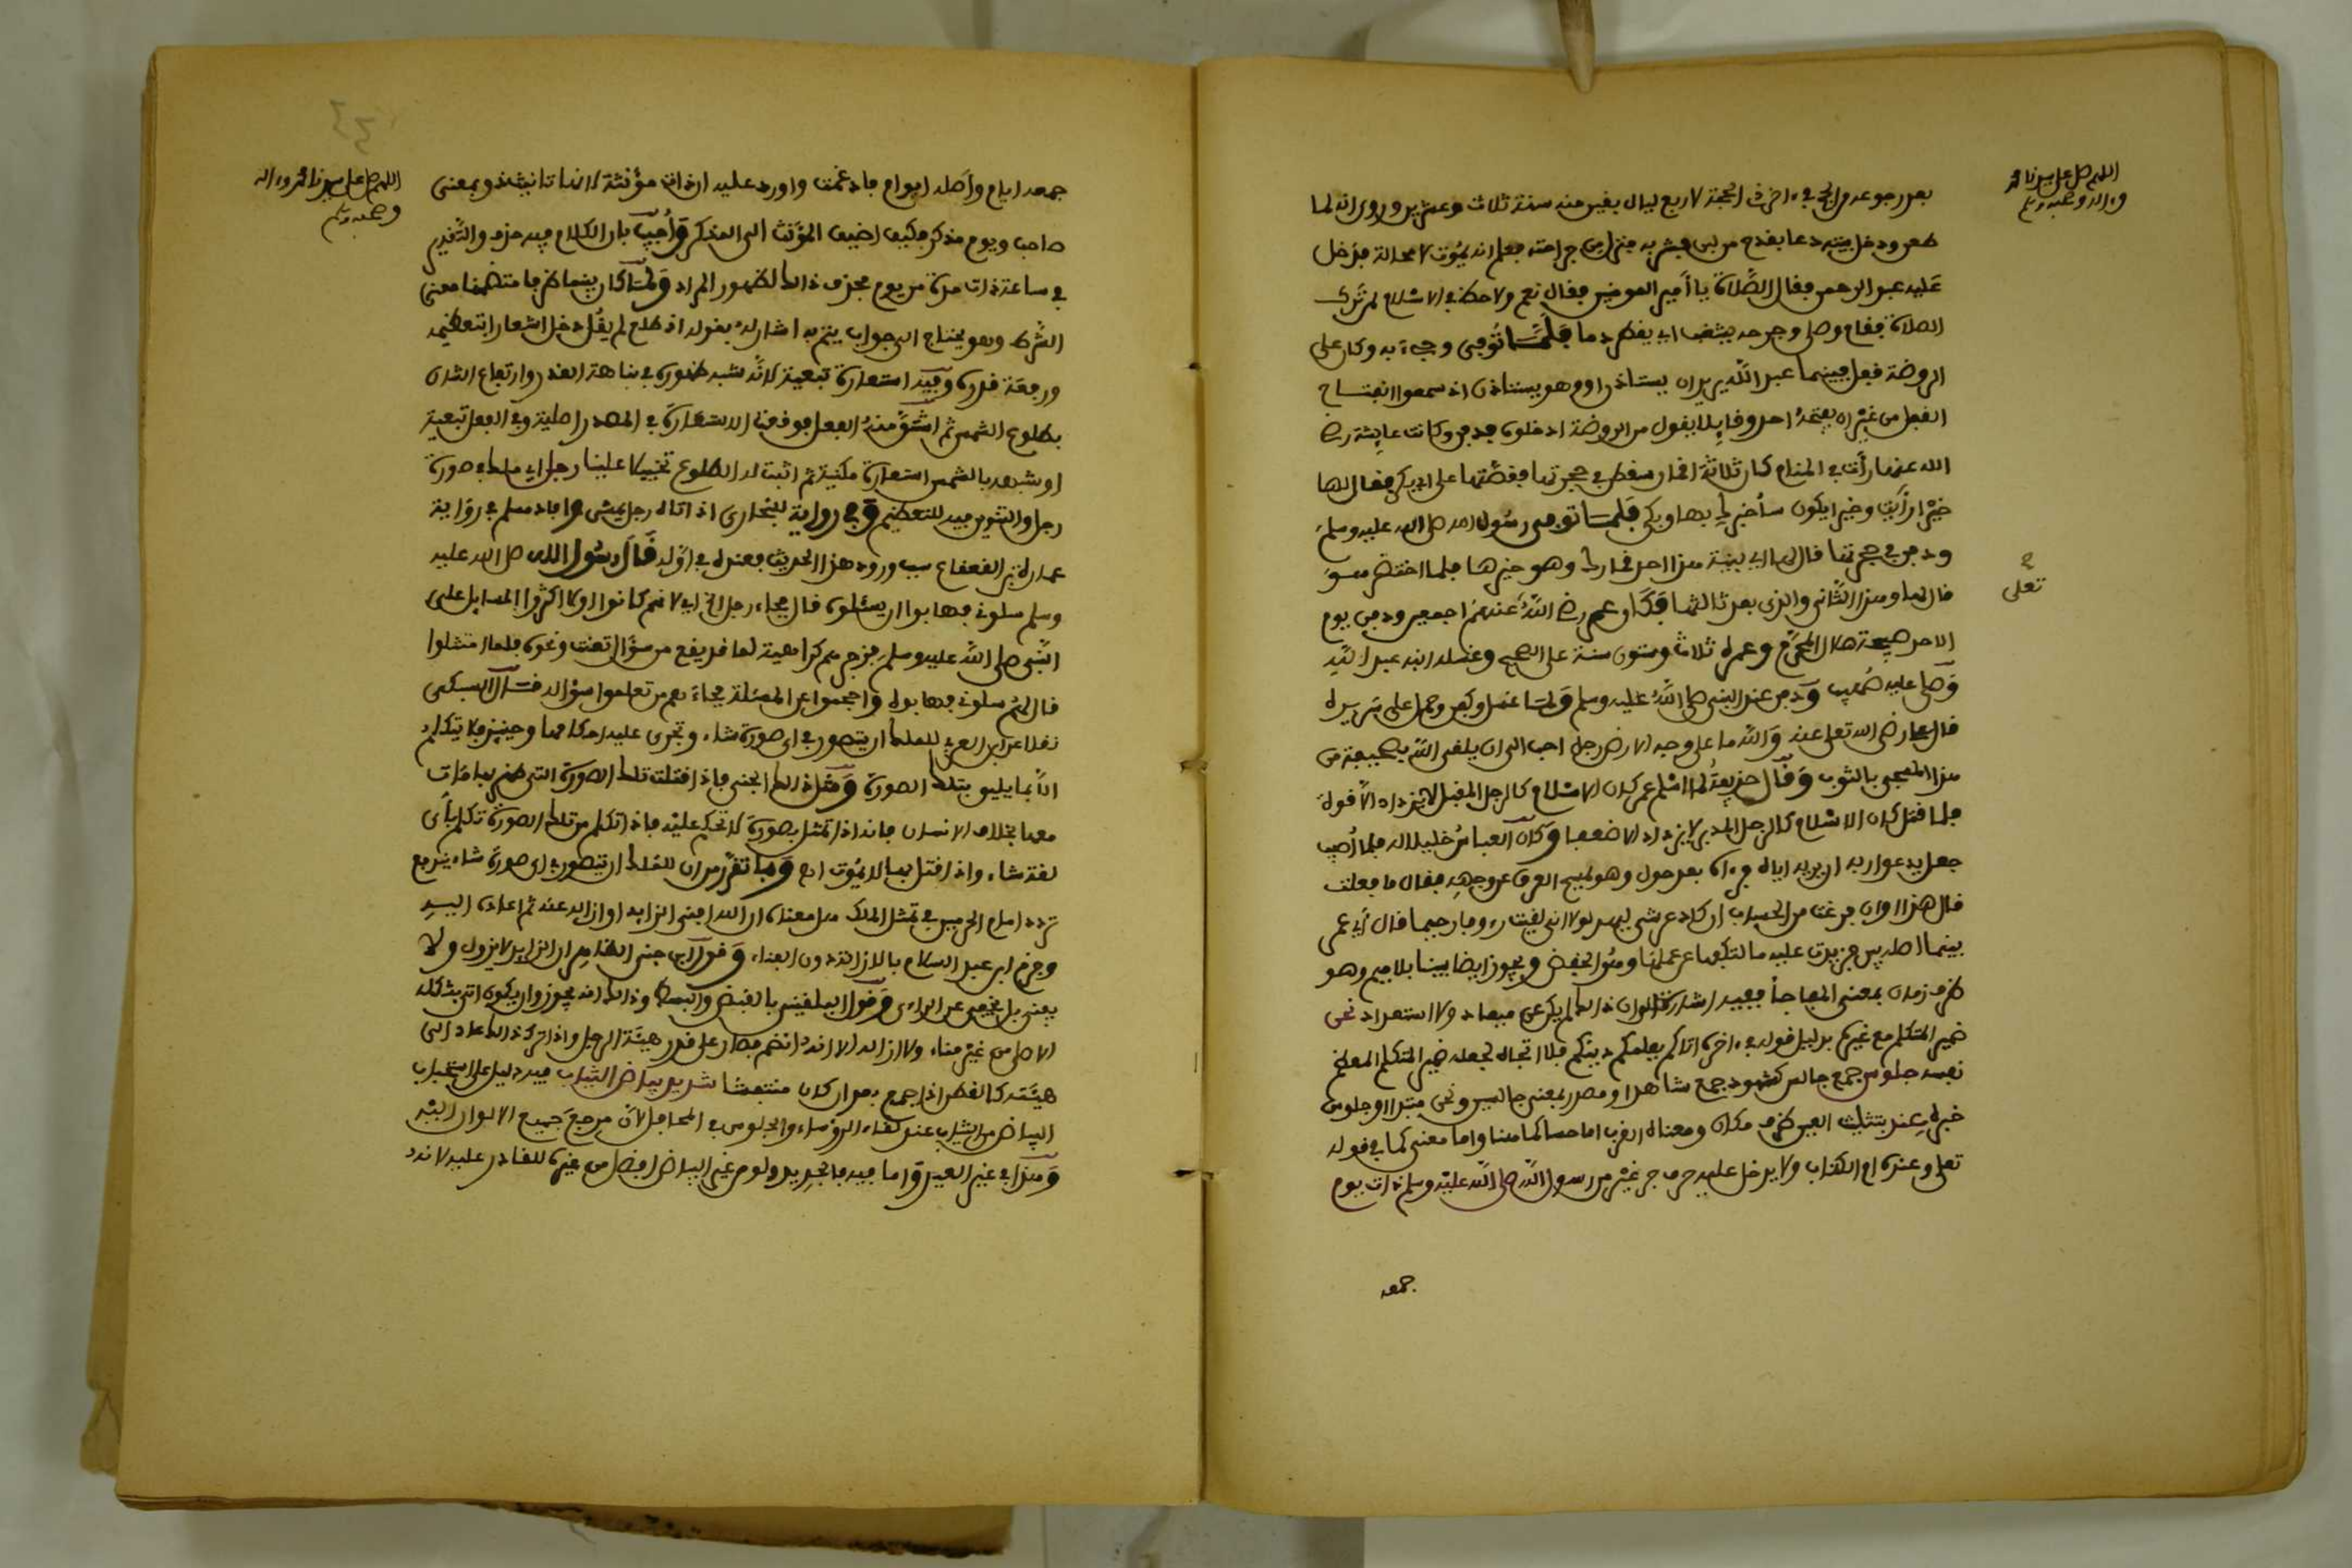 اللهم صل على سيدنا محمد
وءاله وصحبه وسلم
بعد رجوعه من الحج في ءاخر ذي الحجة لاربع ليال بقين منه سنة ثلاث وعشرين وروي انه لما
طعن ودخل بيته دعا بقدح من لبن فشربه فخرج من جراحته فعلم انه يموت لا محالة فدخل
عليه عبد الرحمن فقال الصلاة يا أمير المومنين فقال نعم ولا حظ في الاسلام لمن ترك
الصلاة فقام وصلى وجرحه يثغب اي يقطر دما فلما توفي وجيء به وكان على
الروضة قيل فيينما عبد الله يريد ان يستاذن او وهو يستاذن اذ سمعوا انفتاح
القفل من غير ان يفتحه احد وقايلا يقول من الروضة ادخلوه فدفن وكانت عايشة رضي
الله عنها رأت في المنام كأن ثلاثة اقمار سقطن في حجرتها فقصتها على ابي بكر فقال لها
خيرا رأيت وخيرا يكون سأخبرك بها وبكى فلما توفي رسول الله صلى الله عليه وسلم
ودفن في حجرتها قال لها ابي بنية هذا احد اقمارك وهو خيرها فلما احتضر هو
قال لها وهذا الثاني والذي بعد ثالثها فكان عمر رضي الله عنهم اجمعين ودفن يوم
تعلى
الاحد صبيحة هلال المحرم وعمره ثلاث وستون سنة على الصحيح وغسله ابنه عبد الله
وصلى عليه صهيب ودفن عند النبي صلى الله عليه وسلم ولما غسل وكفن وحمل على سريره
قال علي رضي الله تعلى عنه والله ما على وجه الارض رجل احب الي ان يلقى الله بصحيفته من
هذا المسجى بالثوب وقال حذيفة لما اسلم عمر كان الاسلام كالرجل المقبل لا يزداد الا قوة
فلما قتل كان الاسلام كالرجل المدبر لا يزداد الا ضعفا وكان العباس خليلا له فلما أصيب
جعل يدعو الله ان يريه اياه فرءاه بعد حول وهو يمسح العرق عن وجهه فقال ما فعلت
قال هذا اوان فرغت من الحساب ان كاد عرشي ليهد لولا اني لقيت رءوفا رحيما قال أي عمر
بينما اصله بين فزيدت عليه ما لتكفها عن عملها وهو الخفض ويجوز ايضا بينا بلا ميم وهو
ظرف زمان بمعنى المفاجأة ففيه اشارة الى ان ذلك لم يكن عن ميعاد ولا استعداد نحن
ضمير المتكلم مع غيره بدليل قوله في ءاخره اتاكم يعلمكم دينكم فلا اتجاه لجعله ضمير المتكلم المعظم
نفسه جلوس جمع جالس كشهود جمع شاهد او مصدر بمعنى جالسين ونحن مبتدا وجلوس
خبره عند بتثليث العين ظرف مكان ومعناه القرب اما حسا كما هنا واما معنى كما في قوله
تعلى وعنده ام الكتاب ولا يدخل عليه حرف جر غير من رسول الله صلى الله عليه وسلم ذات يوم
جمعه
٤٤
اللهم صل على سيدنا محمد وءاله
وصحبه وسلم
جمعه ايام وأصله ايوام فادغمت واورد عليه ان ذات مؤنثة لانها تانيث ذو بمعنى
صاحب ويوم مذكر فكيف اضيف المؤنث الى المذكر وأجيب بان الكلام فيه حذف والتقدير
في ساعة ذات مرة من يوم فحذف ذلك لظهور المراد ولما كان بينما ظرفا متضمنا معنى
الشرط وهو يحتاج الى جواب يتم به اشار له بقوله اذ طلع لم يقل دخل اشعارا بتعظيمه
ورفعة قدره وفيه استعارة تبعية لانه شبه ظهوره في نباهة القدر وارتفاع الشان
بطلوع الشمس ثم اشتق منه الفعل فوقعت الاستعارة في المصدر اصلية وفي الفعل تبعية
او شبهه بالشمس استعارة مكنية ثم اثبت له الطلوع تخييلا علينا رجل اي ملك في صورة
رجل والتنوين فيه للتعظيم وفي رواية للبخاري اذ اتاه رجل يمشي وافاد مسلم في رواية
عمارة بن القعقاع سبب ورود هذا الحديث فعنده في اوله قال رسول الله صلى الله عليه
وسلم سلوني فهابوا ان يسئلوه قال فجاء رجل الخ اي لانهم كانوا اولا اكثروا المسايل على
النبي صلى الله عليه وسلم فزجرهم كراهية لما قد يقع من سؤال تعنت ونحوه فلما امتثلوا
قال لهم سلوني فهابوه واحجموا عن المسئلة فجاءهم من تعلموا بسؤاله قال السبكي
نقلا عن ابن العربي للملك ان يتصور في اي صورة شاء وتجري عليه احكامها وحينئذ فلا يتكلم
الا بما يليق بتلك الصورة ومثل ذلك الجني فاذا قتلت تلك الصورة التي ظهر بها مات
معها بخلاف الانسان فانه اذا تمثل بصورة لا تحكم عليه فاذا تكلم من تلك الصورة تكلم بأي
لغة شاء واذا قتل بها لا يموت اهـ وما تقرر من ان للملك ان يتصور في اي صورة شاء يدفع
تردد امام الحرمين في تمثل الملك هل معناه ان الله افنى الزايد او ازاله عنه ثم اعاده اليه
وجزم ابن عبد السلام بالازالة دون الفناء وقول ابن حجر الظاهر ان الزايد لا يزول ولا
يفنى بل يخفى عن الراءي وقول البلقيني بالقبض والبسط وذلك انه يجوز ان يكون اتى بشكله
الاصلي من غير فناء ولا ازالة الا انه انضم فصار على قدر هيئة الرجل واذا ترك ذلك عاد الى
هيئته كالقطن اذا جمع بعد ان كان منتفشا شديد بياض الثياب فيه دليل على استحباب
البياض من الثياب عند لقاء الرؤساء والجلوس في المحافل لأن مرجع جميع الالوان اليه
وهذا في غير العيد واما فيه فالجديد ولو من غير البياض افضل من غيره للقادر عليه لانه